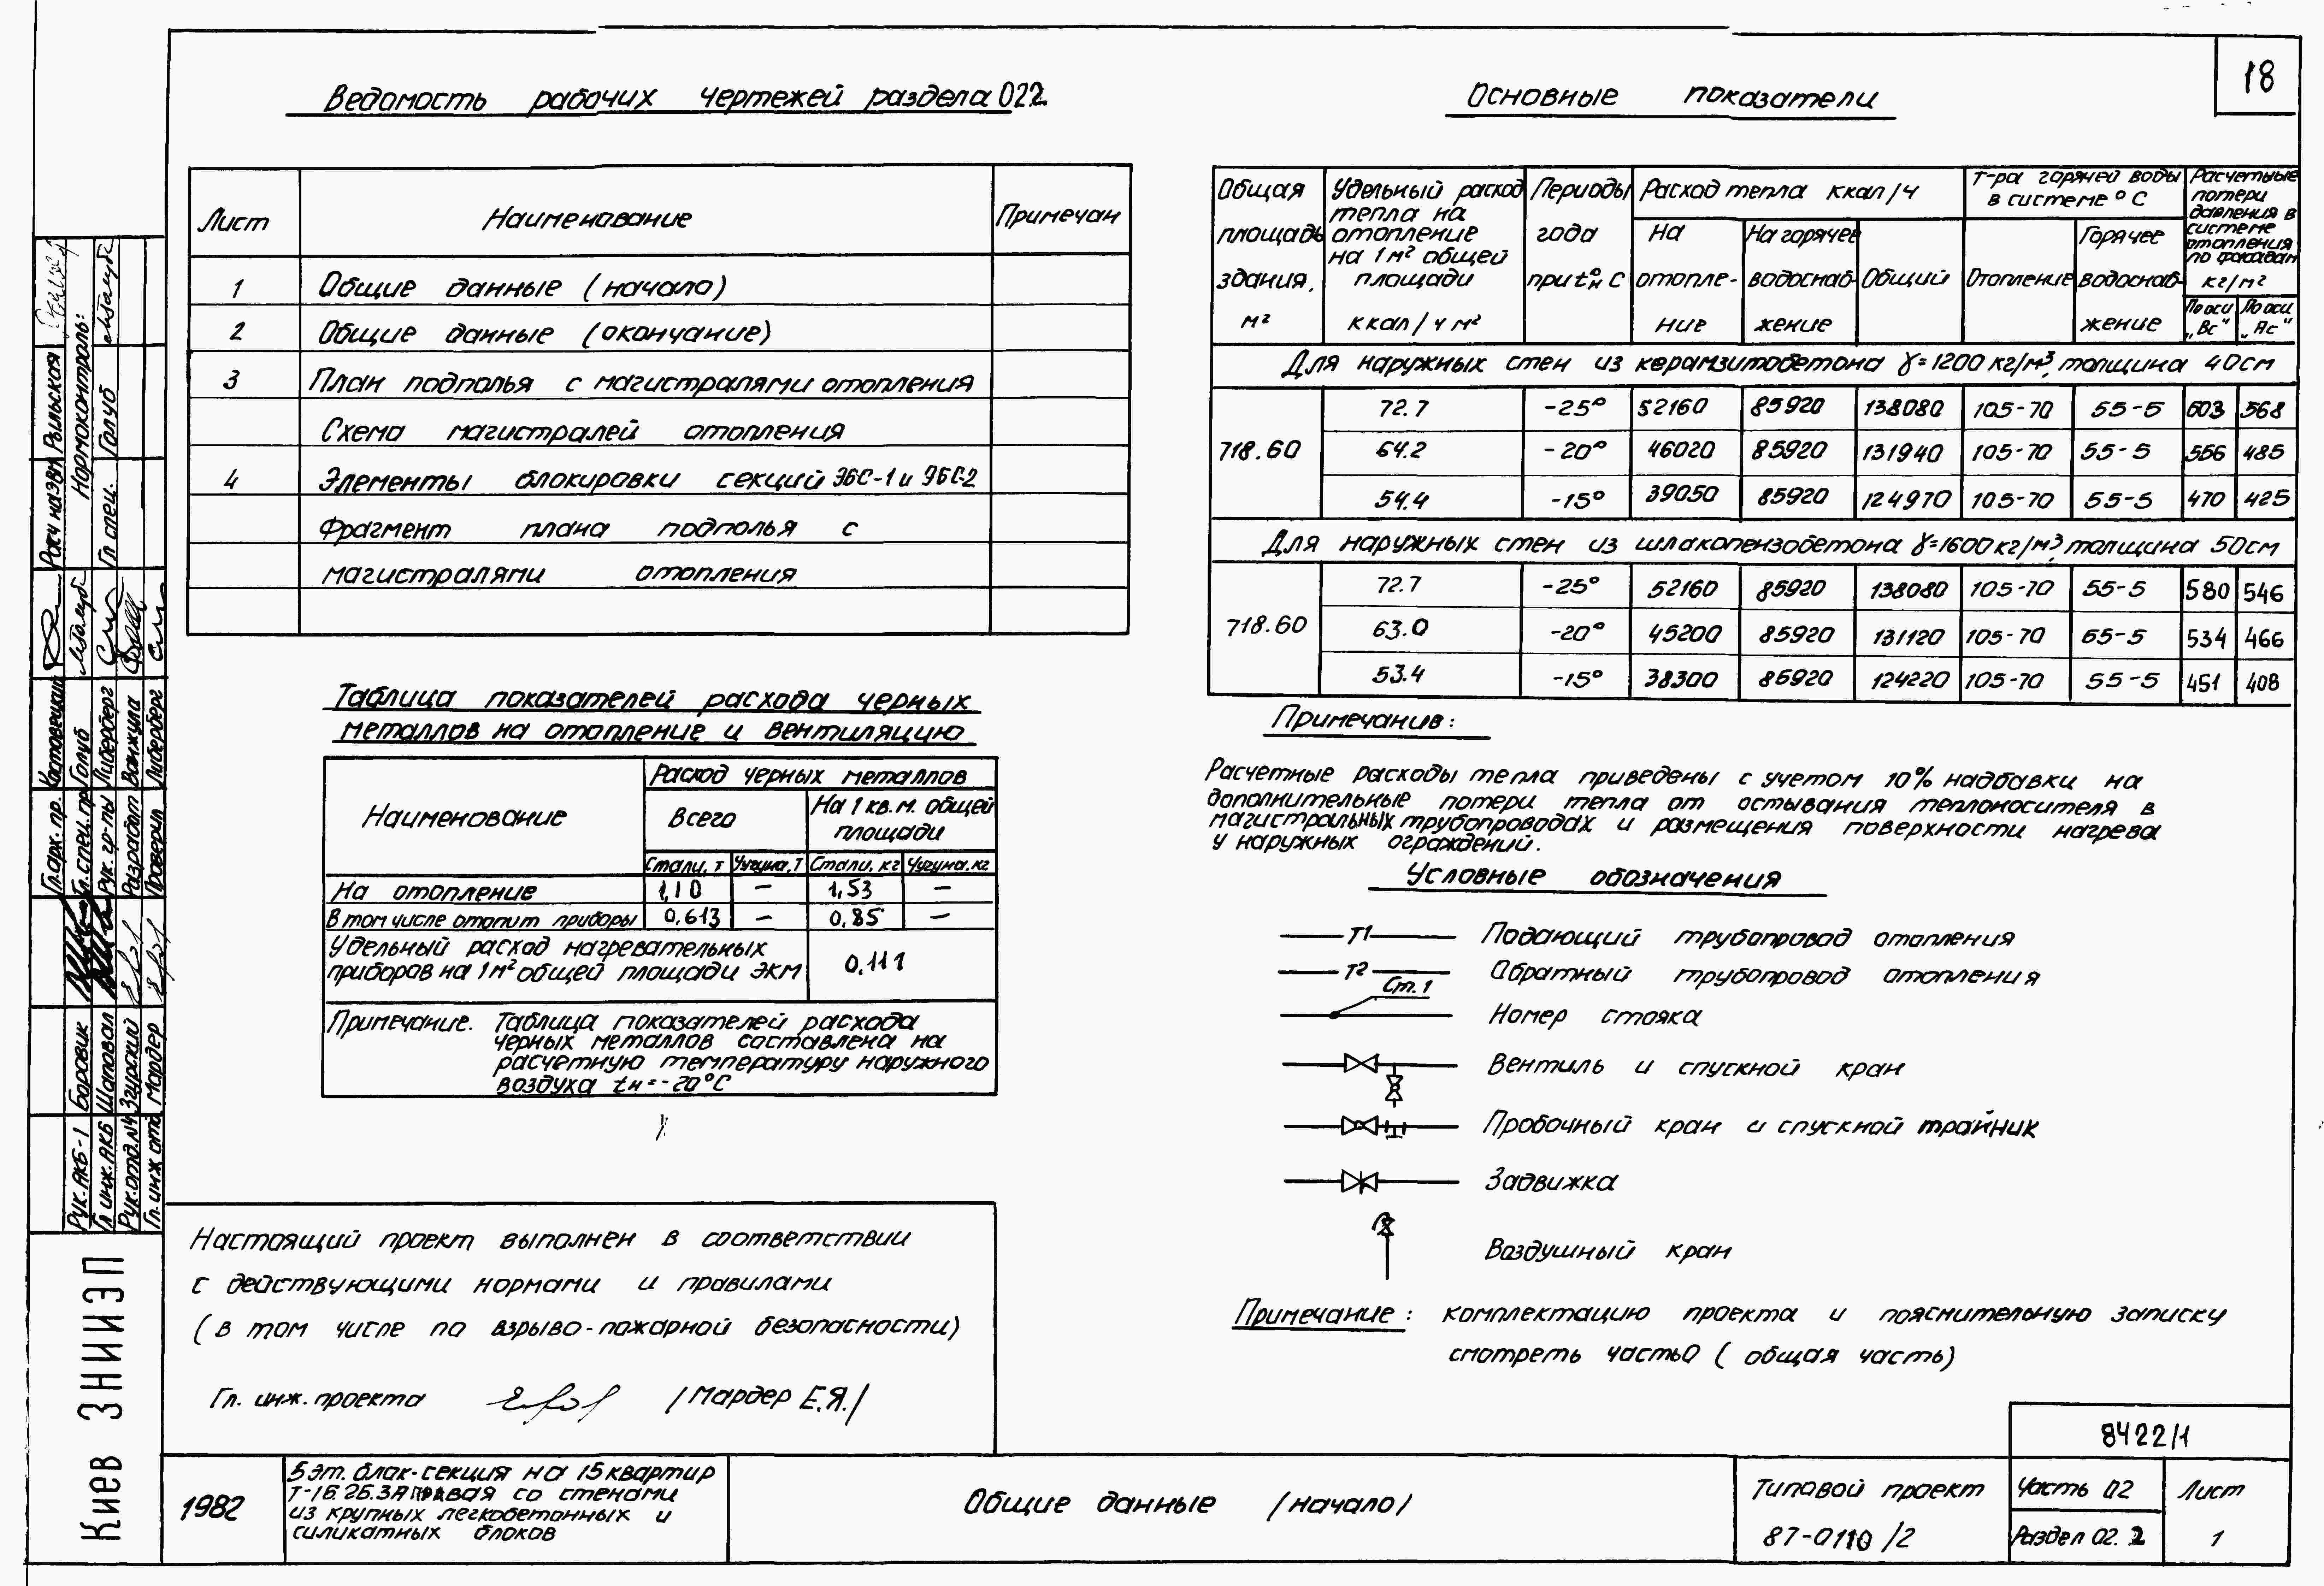 18
Ведомость рабочих чертежей раздела 02.2
Лист Наименование Примечан
1 Общие данные (начало)
2 Общие данные (окончание)
3 План подполья с магистралями отопления
Схема магистралей отопления
4 Элементы блокировки секций ЭБС-1 и ЭБС-2
Фрагмент плана подполья с
магистралями отопления
Таблица показателей расхода черных
металлов на отопление и вентиляцию
Наименование
Расход черных металлов
Всего
На 1 кв.м. общей
площади
Стали, т Чугуна, т Стали, кг Чугуна, кг
На отопление 1,10 – 1,53 –
В том числе отопит приборы 0,613 – 0,85 –
Удельный расход нагревательных
приборов на 1м² общей площади ЭКМ 0,111
Примечание. Таблица показателей расхода
черных металлов составлена на
расчетную температуру наружного
воздуха tн=-20°С
Настоящий проект выполнен в соответствии
с действующими нормами и правилами
(в том числе по взрыво-пожарной безопасности)
Гл. инж. проекта /Мардер Е.Я./
Основные показатели
Общая
площадь
здания,
м²
Удельный расход
тепла на
отопление
на 1м² общей
площади
ккал/ч м²
Периоды
года
при tн° С
Расход тепла ккал/ч
На
отопле-
ние
На горячее
водоснаб-
жение
Общий
Т-ра горячей воды
в системе °С
Отопление
Горячее
водоснаб-
жение
Расчетные
потери
давления в
системе
отопления
по фасадам
кг/м²
По оси
„Вс"
По оси
„Ас"
Для наружных стен из керамзитобетона γ=1200 кг/м³, толщина 40см
718.60
72.7 -25° 52160 85920 138080 105-70 55-5 603 568
64.2 -20° 46020 85920 131940 105-70 55-5 556 485
54.4 -15° 39050 85920 124970 105-70 55-5 470 425
Для наружных стен из шлакопензобетона γ=1600 кг/м³, толщина 50см
718.60
72.7 -25° 52160 85920 138080 105-70 55-5 580 546
63.0 -20° 45200 85920 131120 105-70 55-5 534 466
53.4 -15° 38300 85920 124220 105-70 55-5 451 408
Примечание:
Расчетные расходы тепла приведены с учетом 10% надбавки на
дополнительные потери тепла от остывания теплоносителя в
магистральных трубопроводах и размещения поверхности нагрева
у наружных ограждений.
Условные обозначения
Т1 Подающий трубопровод отопления
Т2 Обратный трубопровод отопления
Ст.1 Номер стояка
Вентиль и спускной кран
Пробочный кран и спускной тройник
Задвижка
Воздушный кран
Примечание: комплектацию проекта и пояснительную записку
смотреть часть 0 (общая часть)
8422/1
1982
5 эт. блок-секция на 15 квартир
Т-1б.2б.3А правая со стенами
из крупных легкобетонных и
силикатных блоков
Общие данные (начало)
Типовой проект
87-0110/2
Часть 02
Раздел 02.2
Лист
1
Киев ЗНИИЭП
Рук. АКБ-1 Боровик
Гл инж. АКБ Шаповал
Рук. отд. №4 Згурский
Гл. инж отд. Мардер
Гл. арх. пр.
Гл. спец. пр Голуб
Рук. гр-пы Либерберг
Разработ Ванжула
Проверил Либерберг
Расч наз вы Рыльская
Нормоконтроль:
Гл спец. Голуб